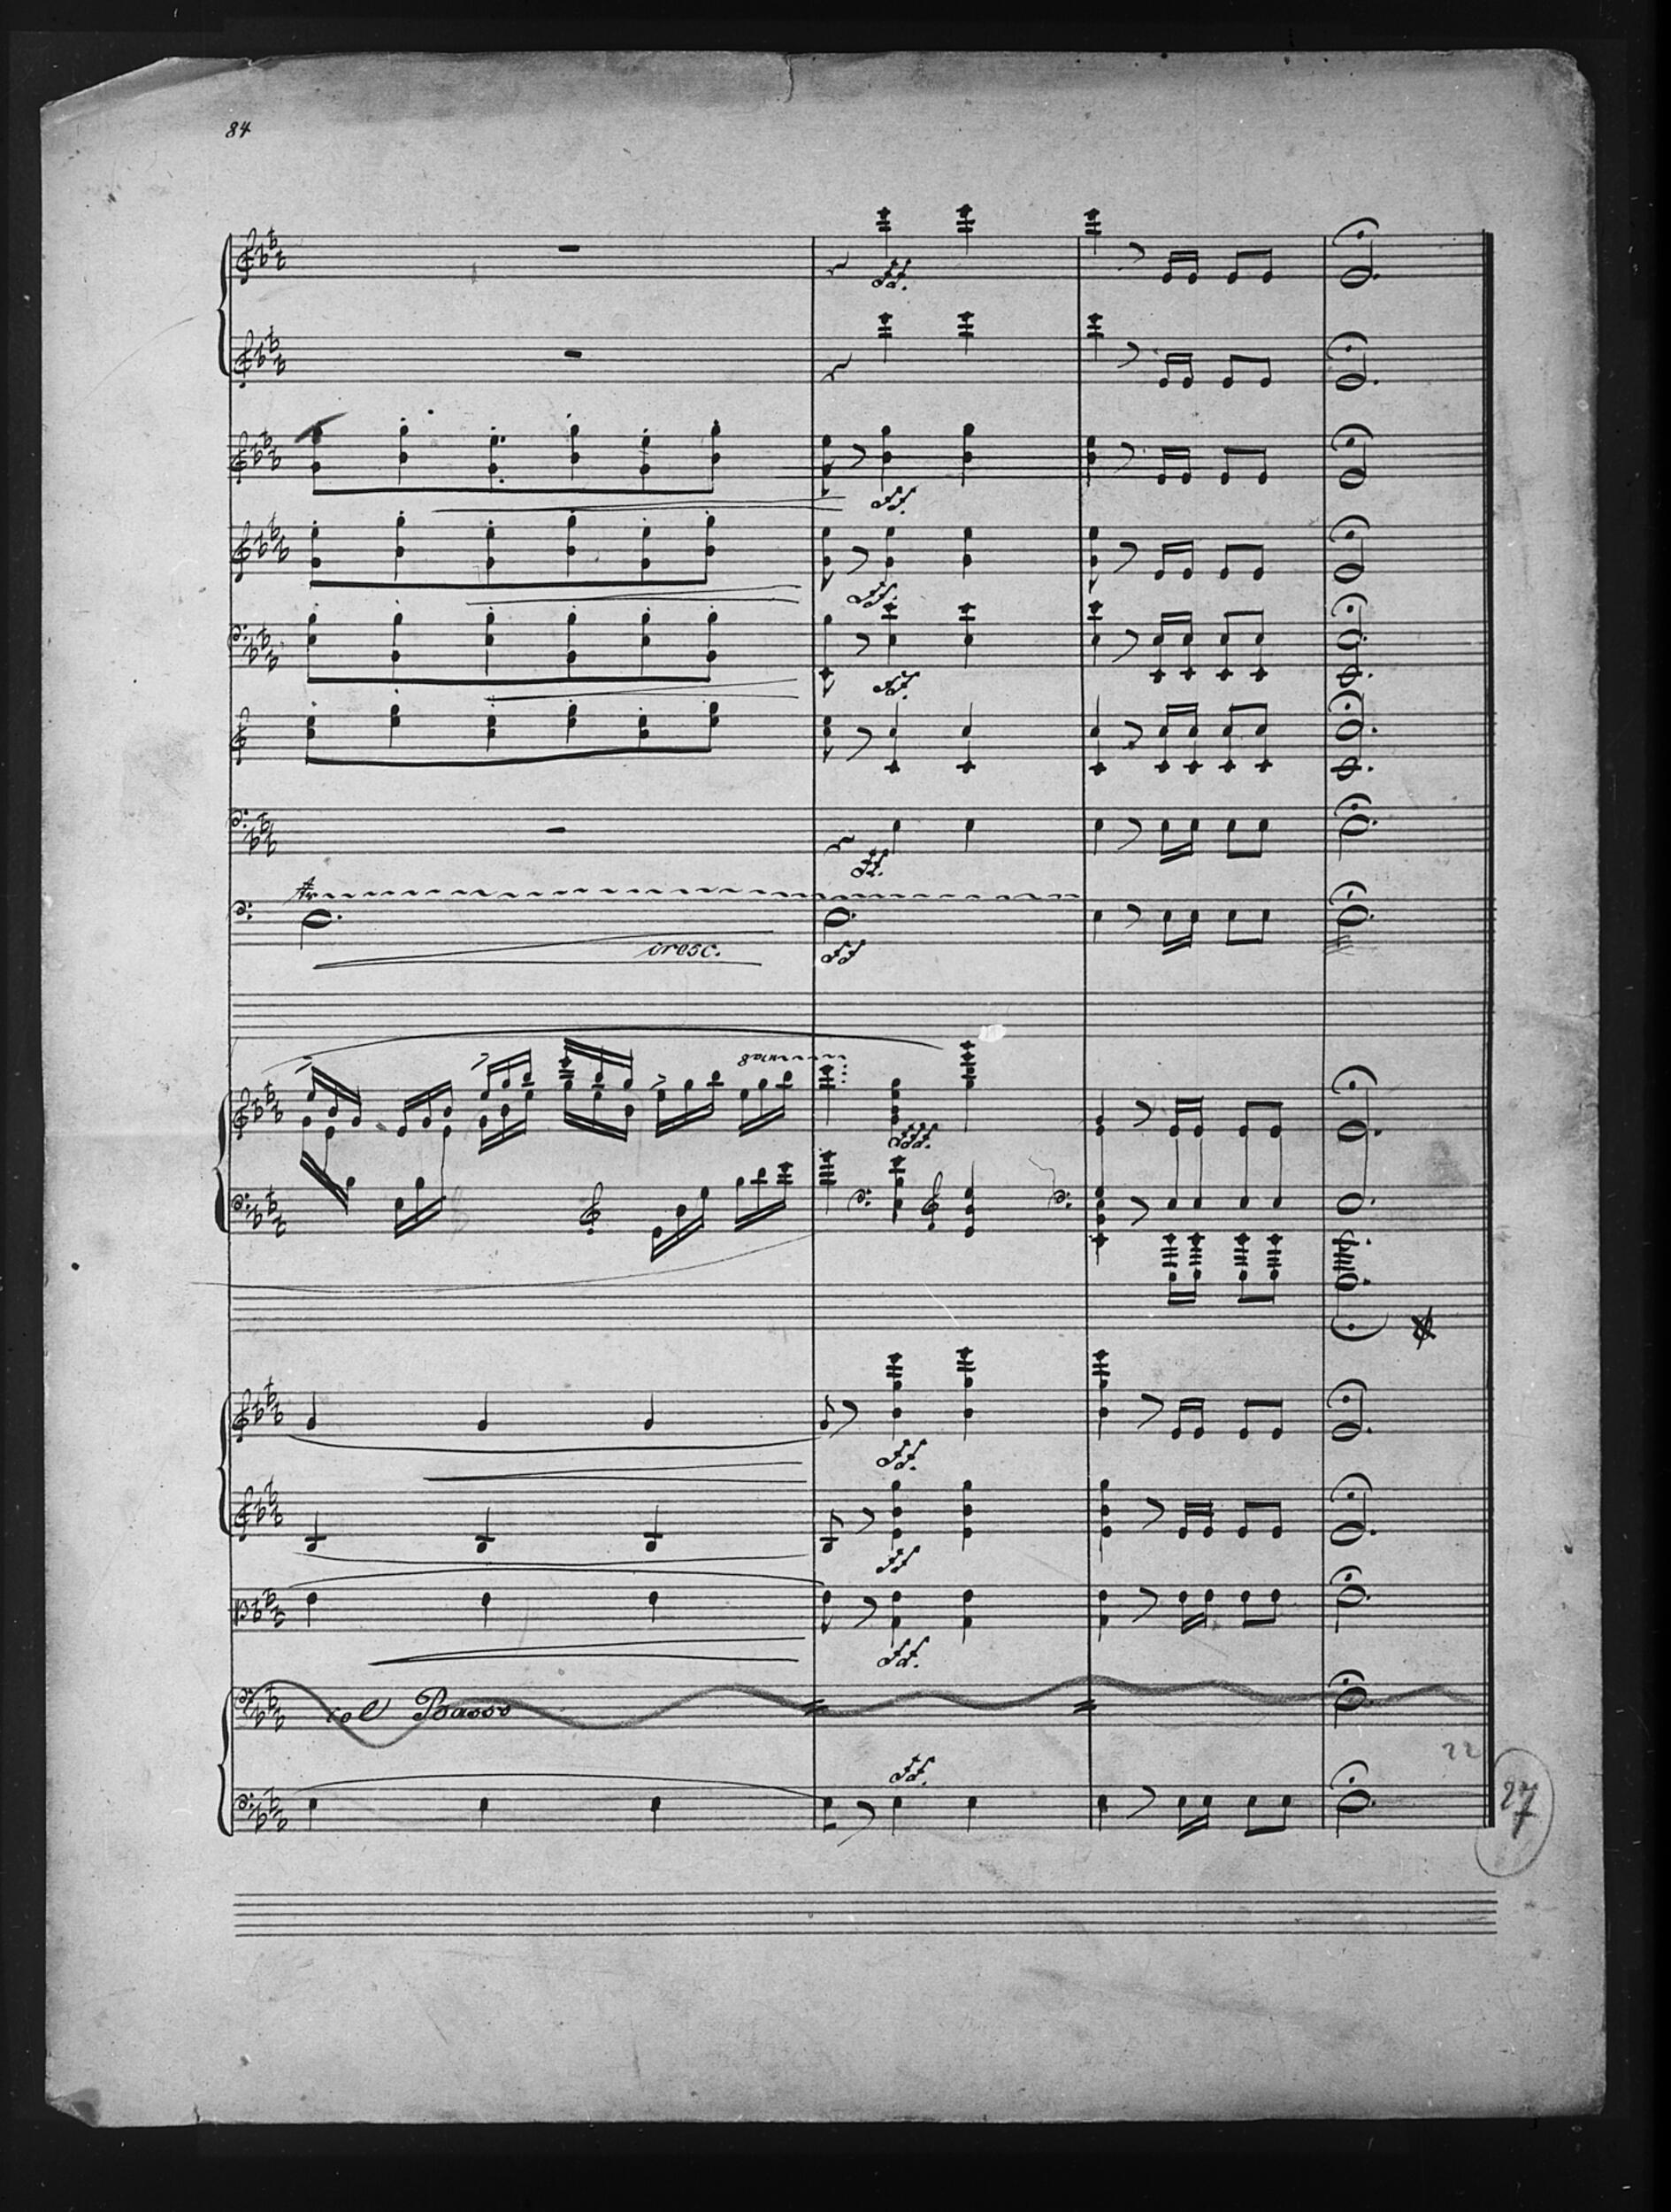 84
ff.
ff.
ff.
ff.
ff.
cresc.
ff
8va
fff.
ff.
ff
ff.
col Basso
22
ff.
27